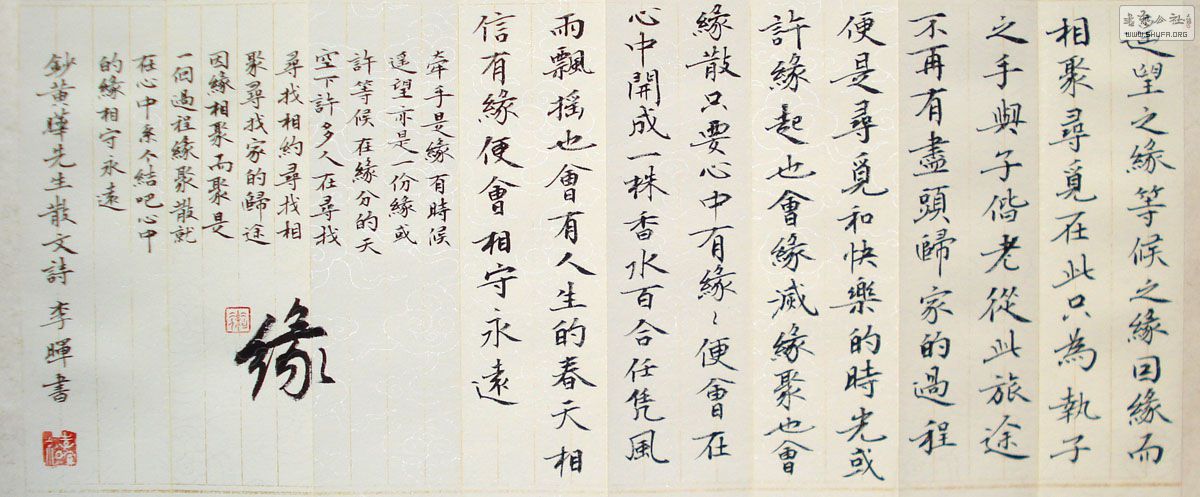 遥望之緣等候之緣回緣而
相聚尋覓在此只為執子
之手與子偕老從此旅途
不再有盡頭歸家的過程
便是尋覓和快樂的時光或
許緣起也會緣滅緣聚也會
緣散只要心中有緣〻便會在
心中開成一株香水百合任凭風
雨飄摇也會有人生的春天相
信有緣便會相守永遠
牽手是緣有時候
遥望亦是一份緣或
許等候在緣分的天
空下許多人在尋找
尋找相約尋找相
聚尋找家的歸途
因緣相聚而聚是
一個過程緣聚散就
在心中系个結吧心中
的緣相守永遠
緣
鈔黄曄先生散文詩 李暉書
WWW.SHUFA.ORG